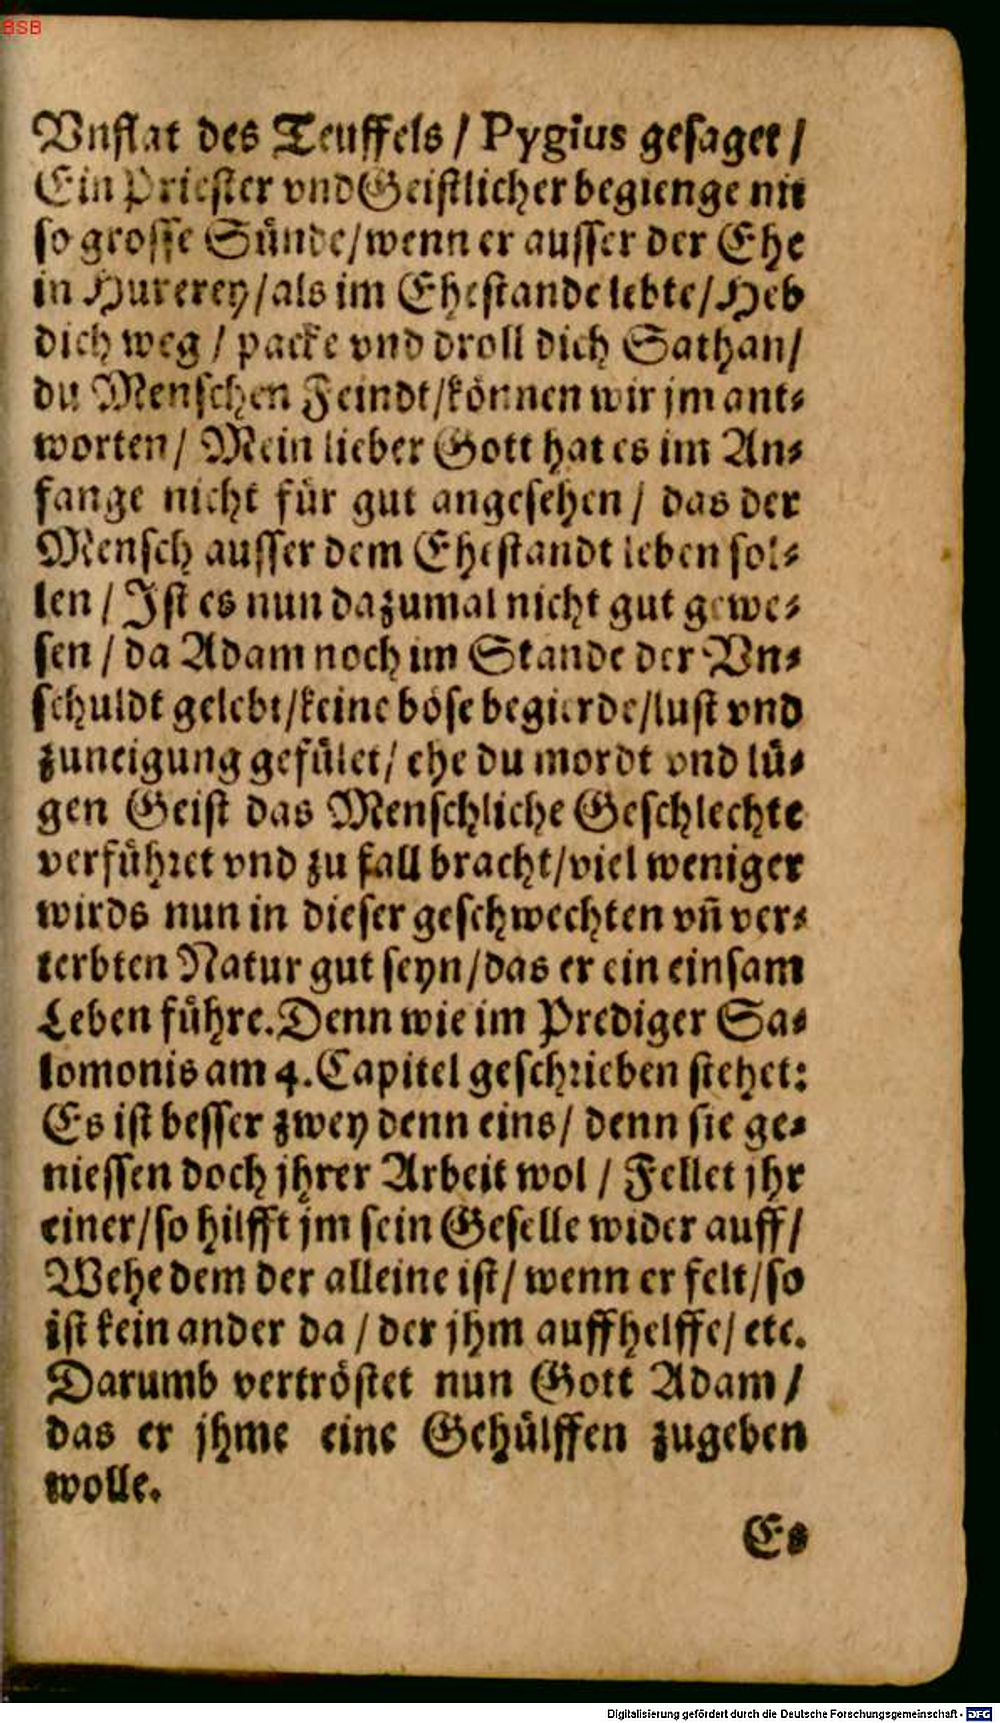 BSB
Vnflat des Teuffels / Pygius gesaget /
Ein Priester vnd Geistlicher begienge nit
so grosse Sünde/wenn er ausser der Ehe
in Hurerey/als im Ehestande lebte/Heb
dich weg / packe vnd droll dich Sathan/
du Menschen Feindt/können wir jm ant-
worten/ Mein lieber Gott hat es im An-
fange nicht für gut angesehen / das der
Mensch ausser dem Ehestandt leben sol-
len / Ist es nun dazumal nicht gut gewe-
sen / da Adam noch im Stande der Vn-
schuldt gelebt/keine böse begierde/lust vnd
zuneigung gefület/ ehe du mordt vnd lü-
gen Geist das Menschliche Geschlechte
verführet vnd zu fall bracht/viel weniger
wirds nun in dieser geschwechten vñ ver-
terbten Natur gut seyn/das er ein einsam
Leben führe. Denn wie im Prediger Sa-
lomonis am 4. Capitel geschrieben stehet:
Es ist besser zwey denn eins/ denn sie ge-
niessen doch jhrer Arbeit wol / Fellet jhr
einer/so hilfft jm sein Geselle wider auff/
Wehe dem der alleine ist/ wenn er felt/so
ist kein ander da / der jhm auffhelffe/ etc.
Darumb vertröstet nun Gott Adam /
das er jhme eine Gehülffen zugeben
wolle.
Es
Digitalisierung gefördert durch die Deutsche Forschungsgemeinschaft - DFG